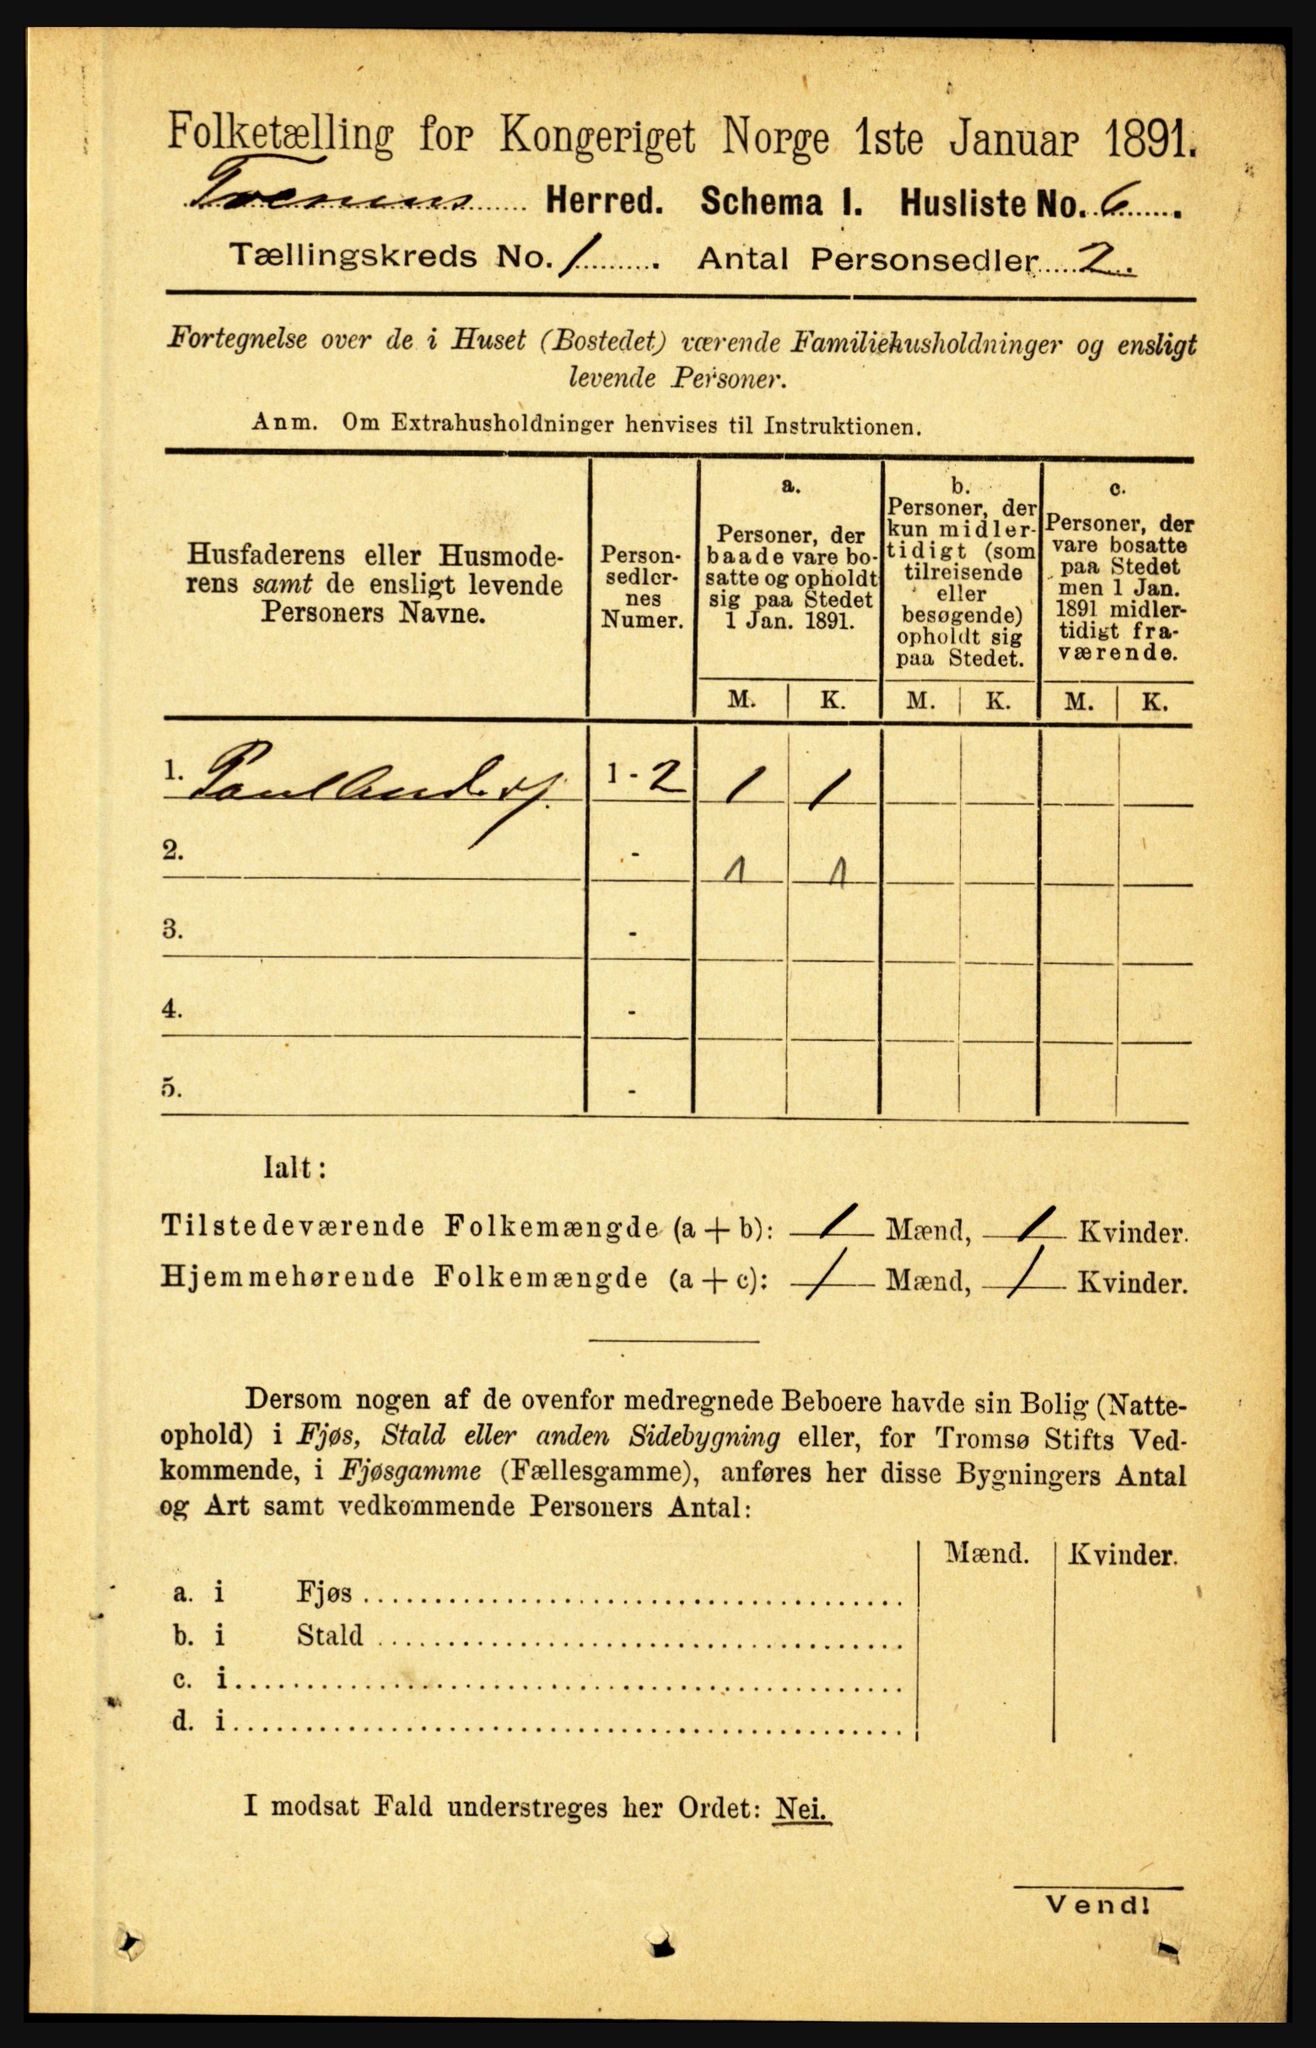 Folketælling for Kongeriget Norge 1ste Januar 1891.
Herred. Schema I. Husliste No. 6
Tællingskreds No. 1. Antal Personsedler 2.
Fortegnelse over de i Huset (Bostedet) værende Familiehusholdninger og ensligt
levende Personer.
Anm. Om Extrahusholdninger henvises til Instruktionen.
Husfaderens eller Husmode-
rens samt de ensligt levende
Personers Navne.
Person-
sedler-
nes
Numer.
a.
Personer, der
baade vare bo-
satte og opholdt
sig paa Stedet
1 Jan. 1891.
b.
Personer, der
kun midler-
tidigt (som
tilreisende
eller
besøgende)
opholdt sig
paa Stedet.
c.
Personer, der
vare bosatte
paa Stedet
men 1 Jan.
1891 midler-
tidigt fra-
værende.
M. K. M. K. M. K.
1. Paul 1 - 2 1 1
2. - 1 1
3. -
4. -
5. -
Ialt:
Tilstedeværende Folkemængde (a + b): 1 Mænd, 1 Kvinder.
Hjemmehørende Folkemængde (a + c): 1 Mænd, 1 Kvinder.
Dersom nogen af de ovenfor medregnede Beboere havde sin Bolig (Natte-
ophold) i Fjøs, Stald eller anden Sidebygning eller, for Tromsø Stifts Ved-
kommende, i Fjøsgamme (Fællesgamme), anføres her disse Bygningers Antal
og Art samt vedkommende Personers Antal:
Mænd. Kvinder.
a. i Fjøs
b. i Stald
c. i
d. i
I modsat Fald understreges her Ordet: Nei.
Vend!